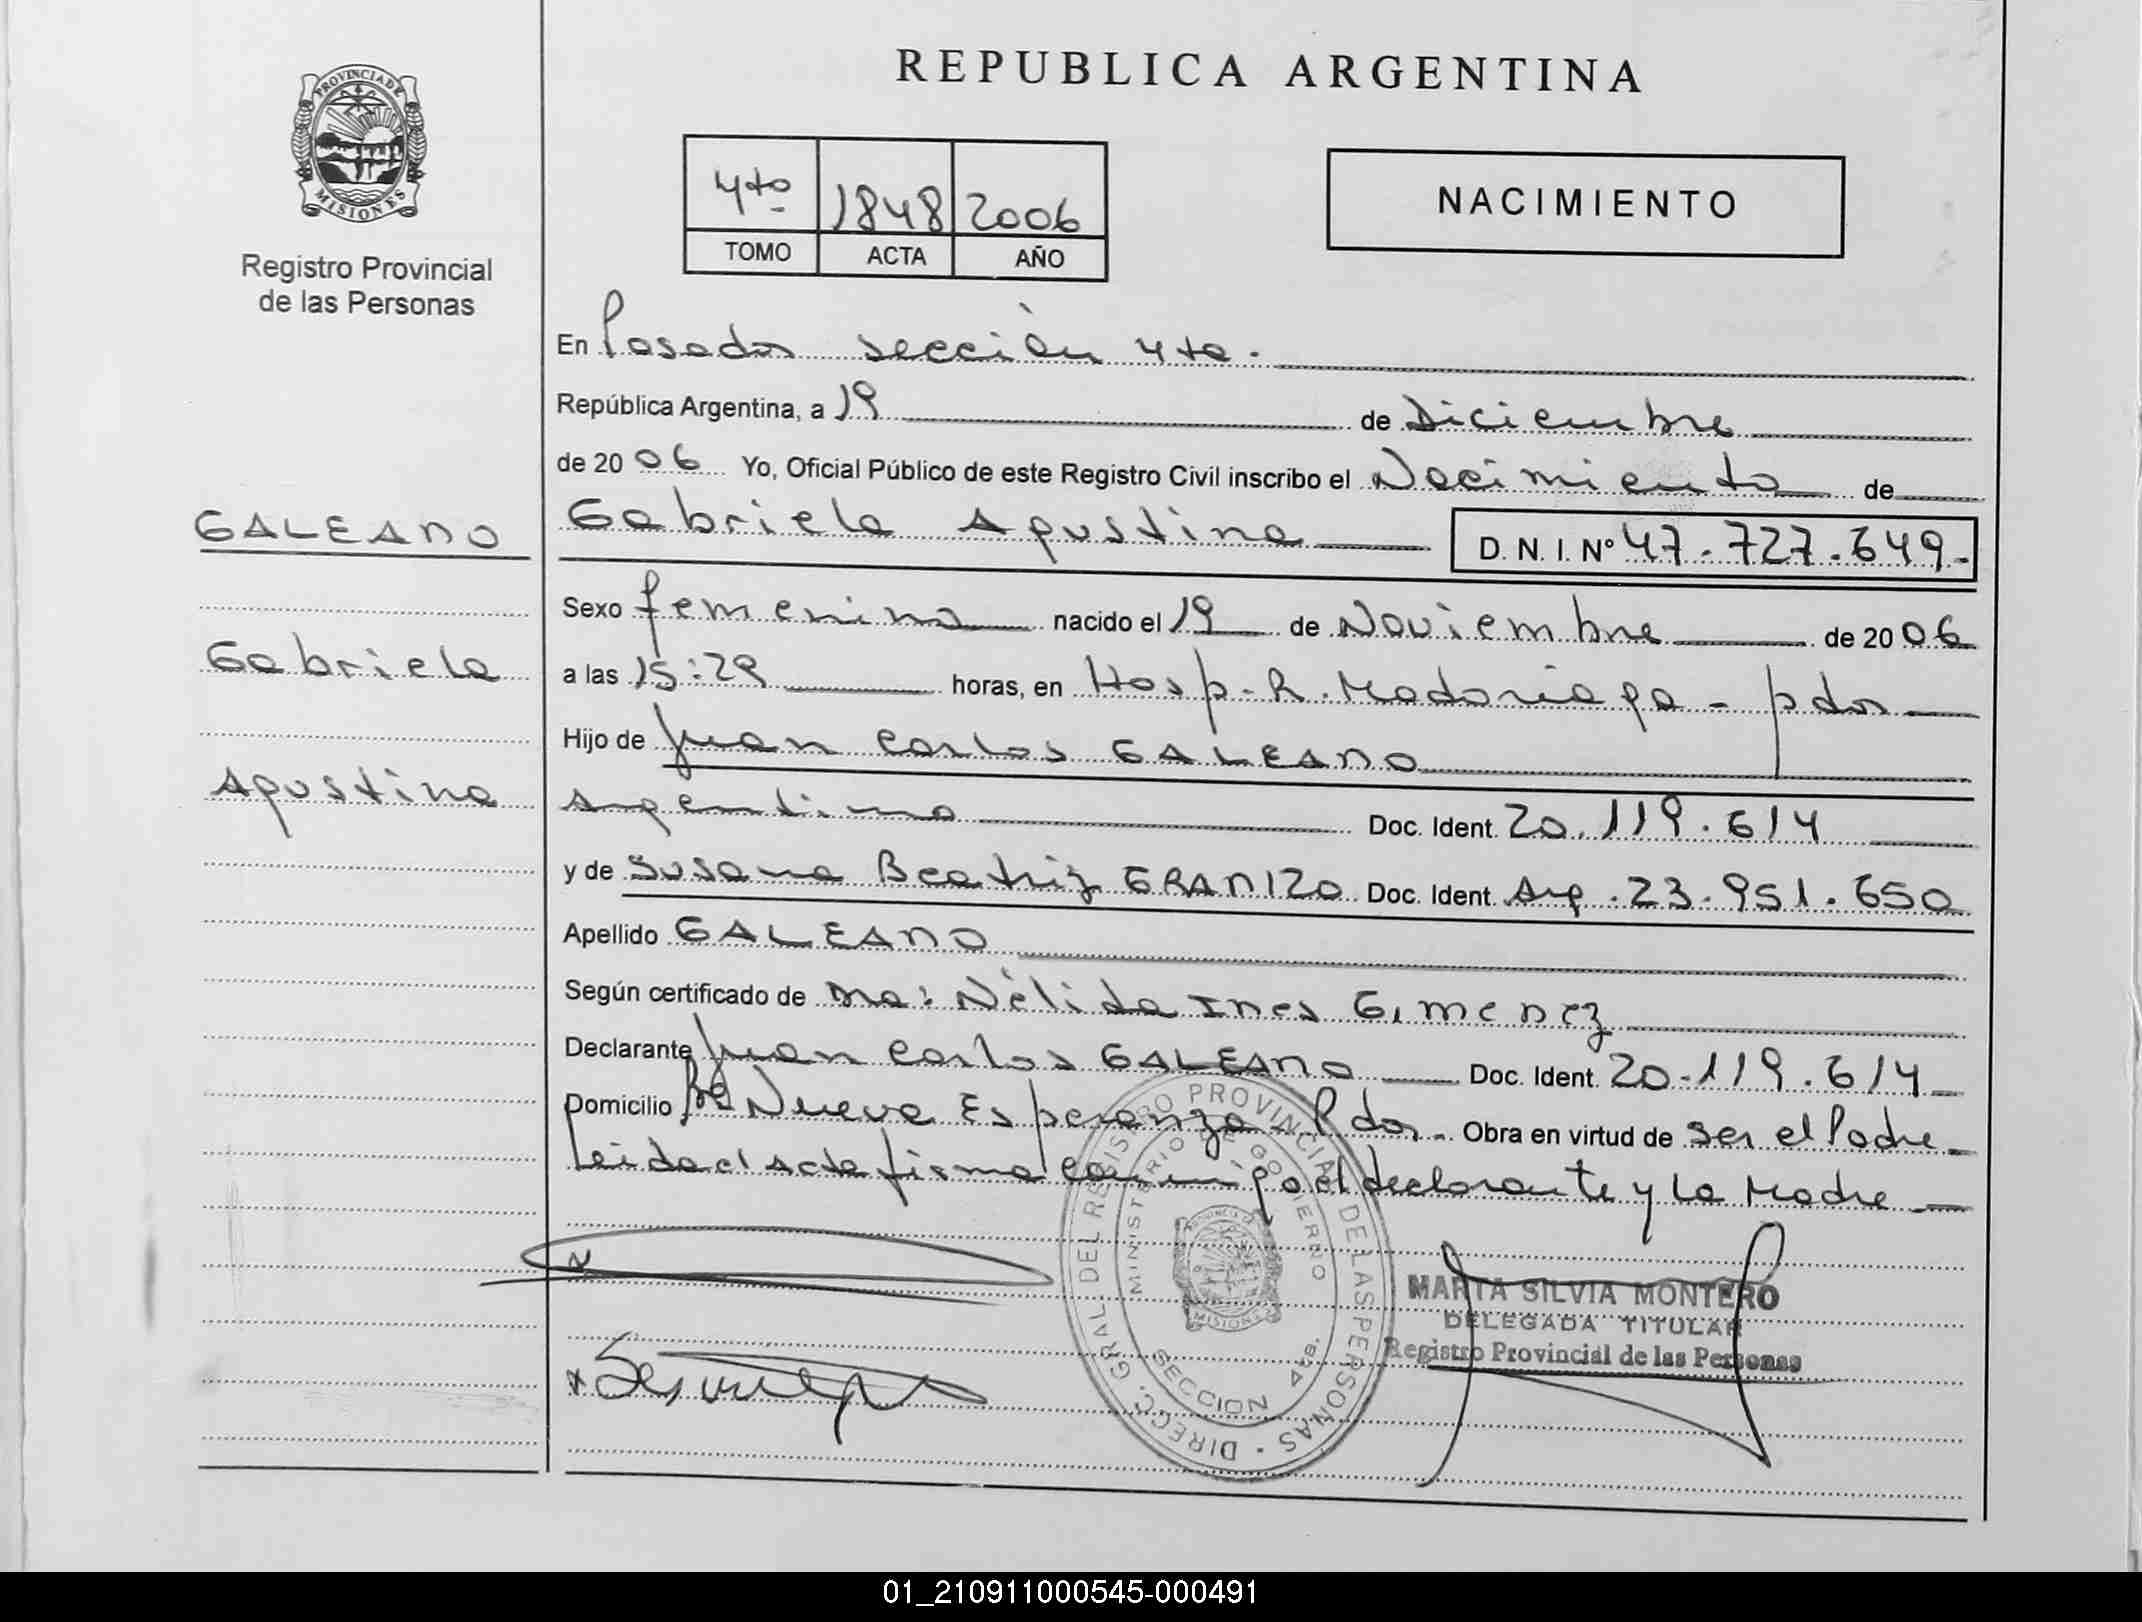 REPUBLICA ARGENTINA
PROVINCIA DE MISIONES
Registro Provincial
de las Personas
4to 1848 2006
TOMO ACTA AÑO
NACIMIENTO
En Posadas sección 4ta.
República Argentina, a 19 de Diciembre
de 2006 Yo, Oficial Público de este Registro Civil inscribo el Nacimiento de
GALEANO
Gabriela
Agustina
Gabriela Agustina D.N.I. Nº 47.727.649.-
Sexo femenino nacido el 19 de Noviembre de 2006
a las 15:29 horas, en Hosp. R. Madariaga - pdas
Hijo de Juan Carlos GALEANO
Argentino Doc. Ident. 20.119.614
y de Susana Beatriz GRANIZO Doc. Ident. Arg. 23.951.650
Apellido GALEANO
Según certificado de Nélida Ines Gimenez
Declarante Juan Carlos GALEANO Doc. Ident. 20.119.614
Domicilio Nueva Esperanza Pdas. Obra en virtud de ser el Padre
Leida el acta firma conmigo el declarante y la Madre
DIRECC. GRAL. DEL REGISTRO PROVINCIAL DE LAS PERSONAS
MINISTERIO DE GOBIERNO
MISIONES
SECCION 4ta.
MARTA SILVIA MONTERO
DELEGADA TITULAR
Registro Provincial de las Personas
01_210911000545-000491